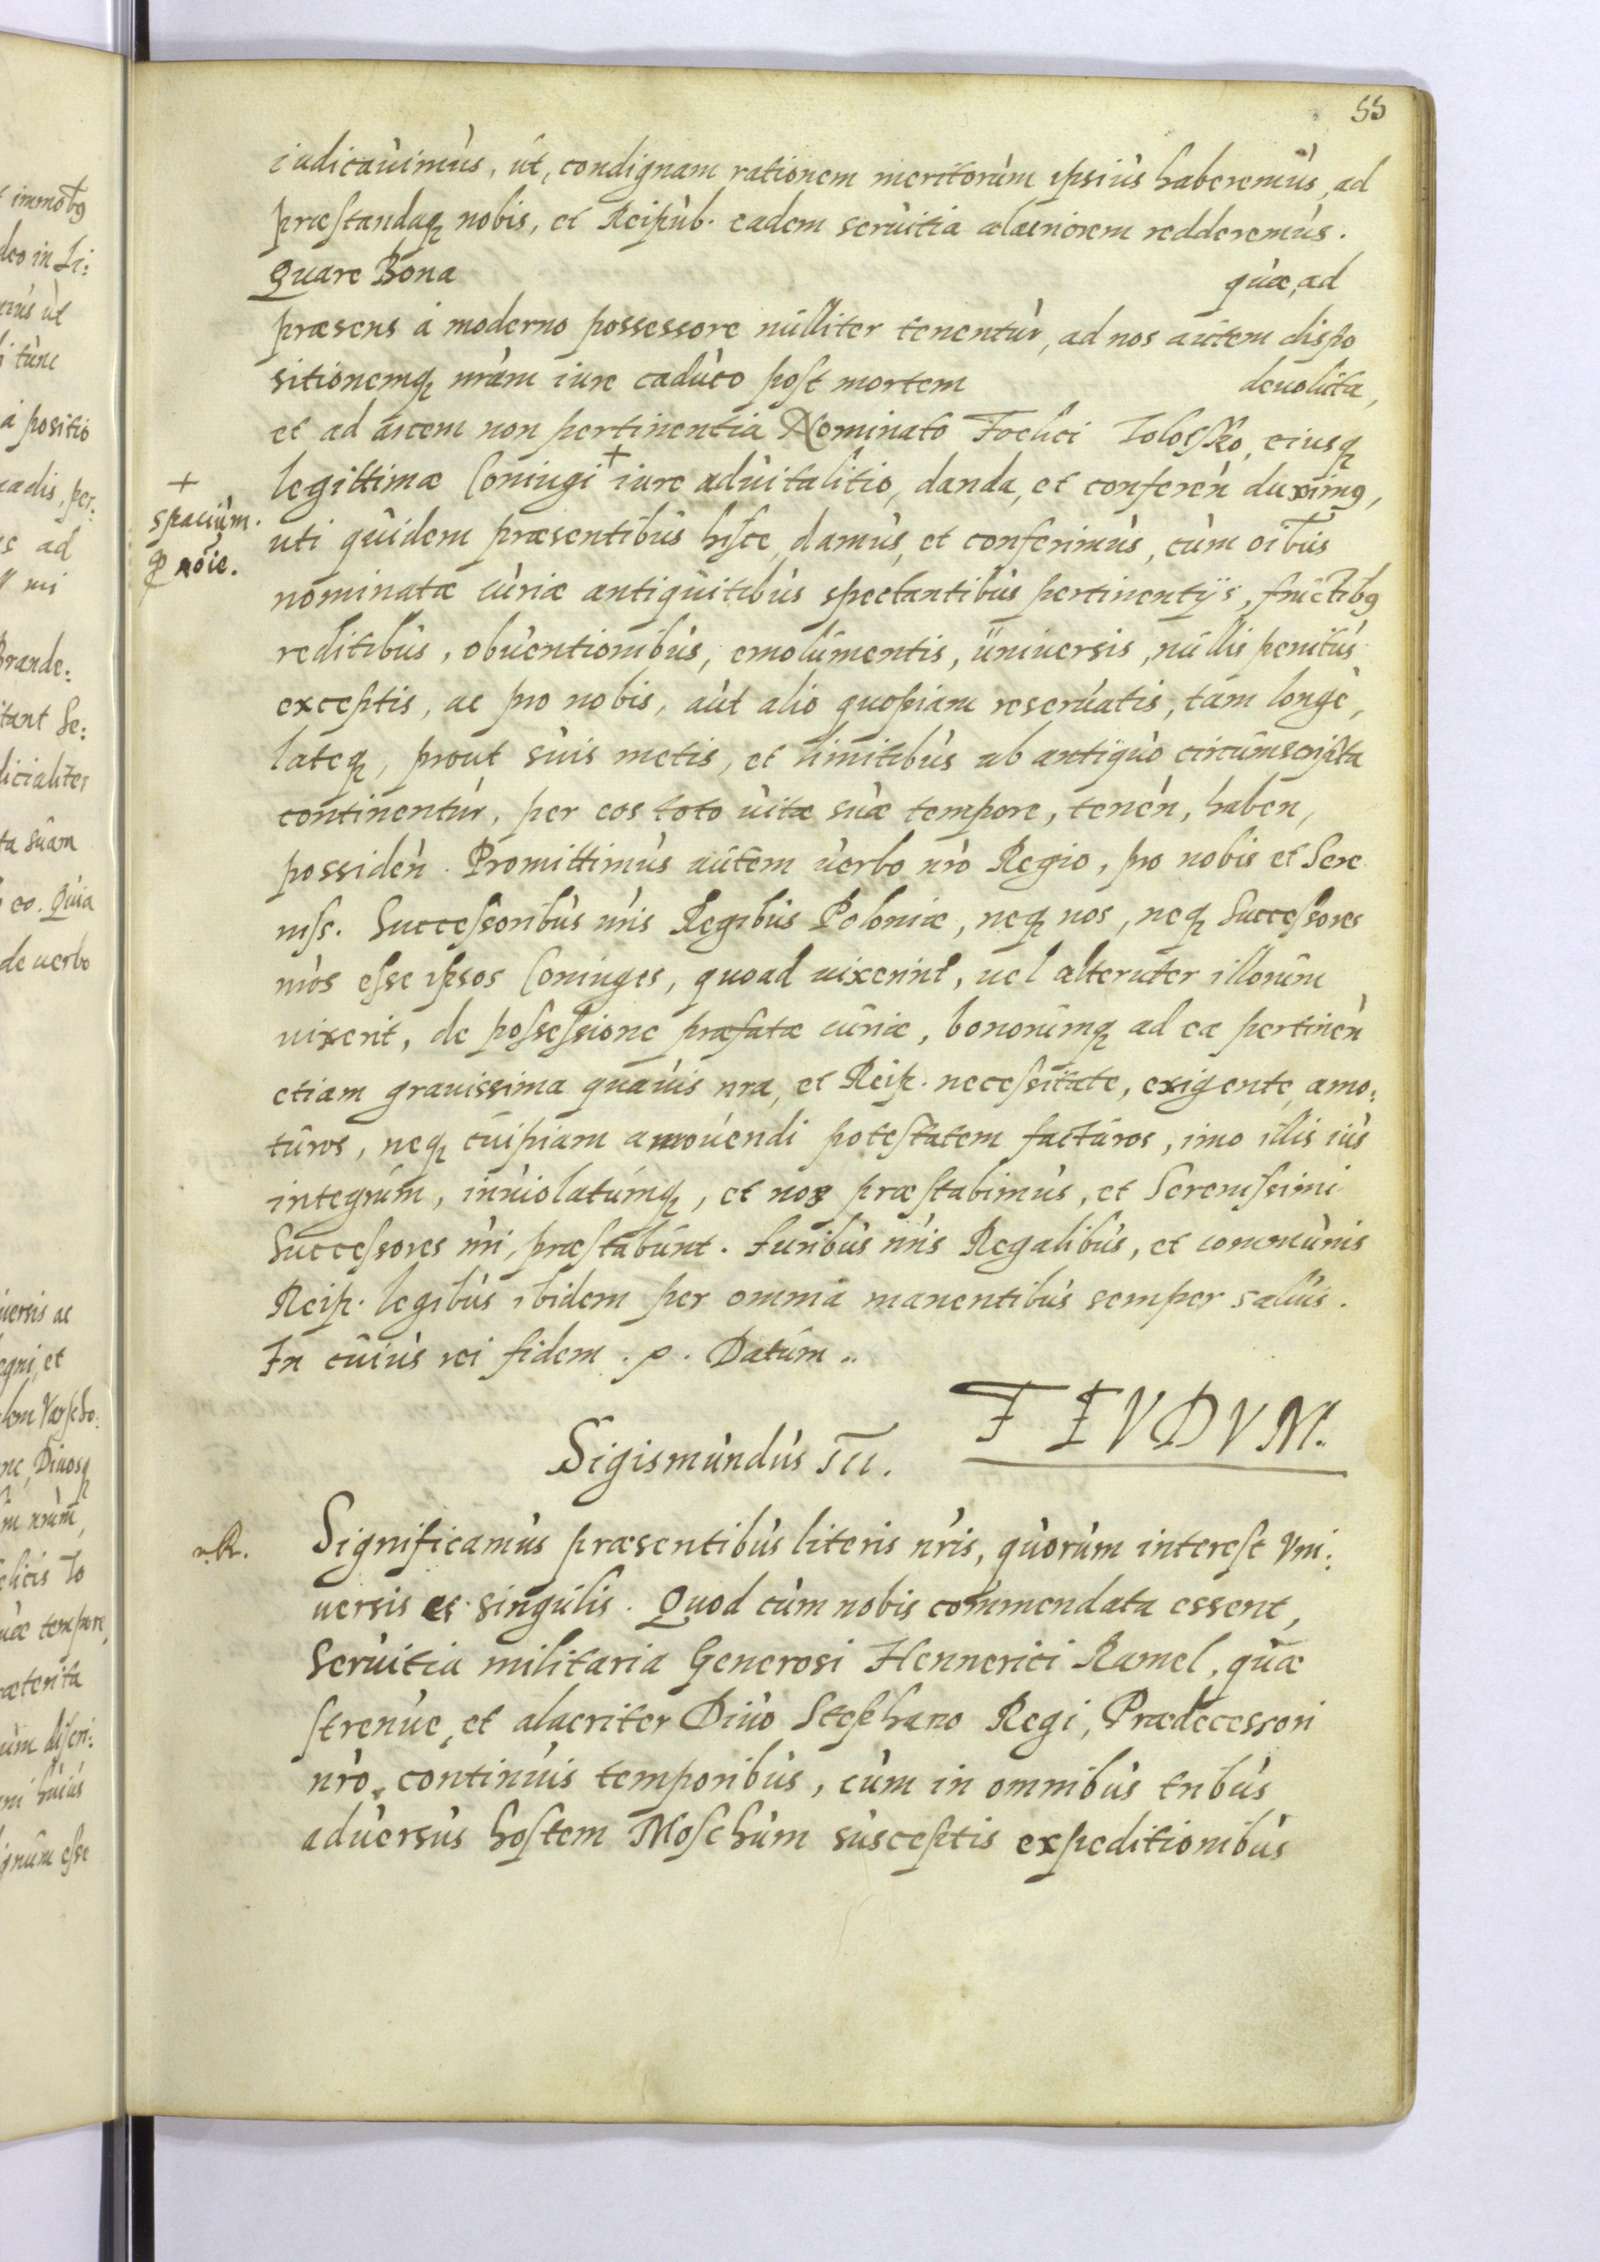 55
iudicauimus, ut, condignam rationem meritorum ipsius haberemus, ad
præstandaq nobis, et Reipub. eadem seruitia alacriorem redderemus.
Quare Bona quæ, ad
præsens à moderno possessore nulliter tenentur, ad nos autem dispo
sitionemq nram iure caduco post mortem deuoluta,
et ad arcem non pertinentia Nominato Foelici Toloſſko, eiusq
legittimæ Coniugi + iure aduitalitio, danda, et conferen duximq,
+
spacium.
p noie.
uti quidem præsentibus hisce, damus, et conferimus, cum oibus
nominatæ curiæ antiquitibus spectantibus pertinentijs, fructibq
reditibus, obuentionibus, emolumentis, uniuersis, nullis penitus
exceptis, ac pro nobis, aut alio quopiam reseruatis, tam longe,
lateq, prout suis metis, et limitibus ab antiquo circumscripta
continentur, per eos toto uitæ suæ tempore, tenen, haben,
possiden. Promittimus autem uerbo nro Regio, pro nobis et Sere
niss. Successoribus nris Regibus Poloniæ, neq nos, neq Successores
nros esse ipsos Coniuges, quoad uixerint, uel alteruter illorum
uixerit, de possessione præfatæ curiæ, bonorumq ad ea pertinen
etiam grauissima quauis nra, et Reip. necessitate, exigente, amo:
turos, neq cuipiam amouendi potestatem facturos, imo illis ius
integrum, inuiolatumq, et nos præstabimus, et Serenissimi
Successores nri, præstabunt. Iuribus nris Regalibus, et communis
Reip. legibus ibidem per omnia manentibus semper saluis.
In cuius rei fidem. p. Datum..
FEVDVM.
Sigismundus III.
Significamus præsentibus literis nris, quorum interest Vni:
uersis et singulis. Quod cum nobis commendata essent,
Seruitia militaria Generosi Hennerici Ramel, quæ
strenue, et alacriter Diuo Stephano Regi, Prædecessori
nro, continuis temporibus, cum in omnibus tribus
aduersus hostem Moschum susceptis expeditionibus